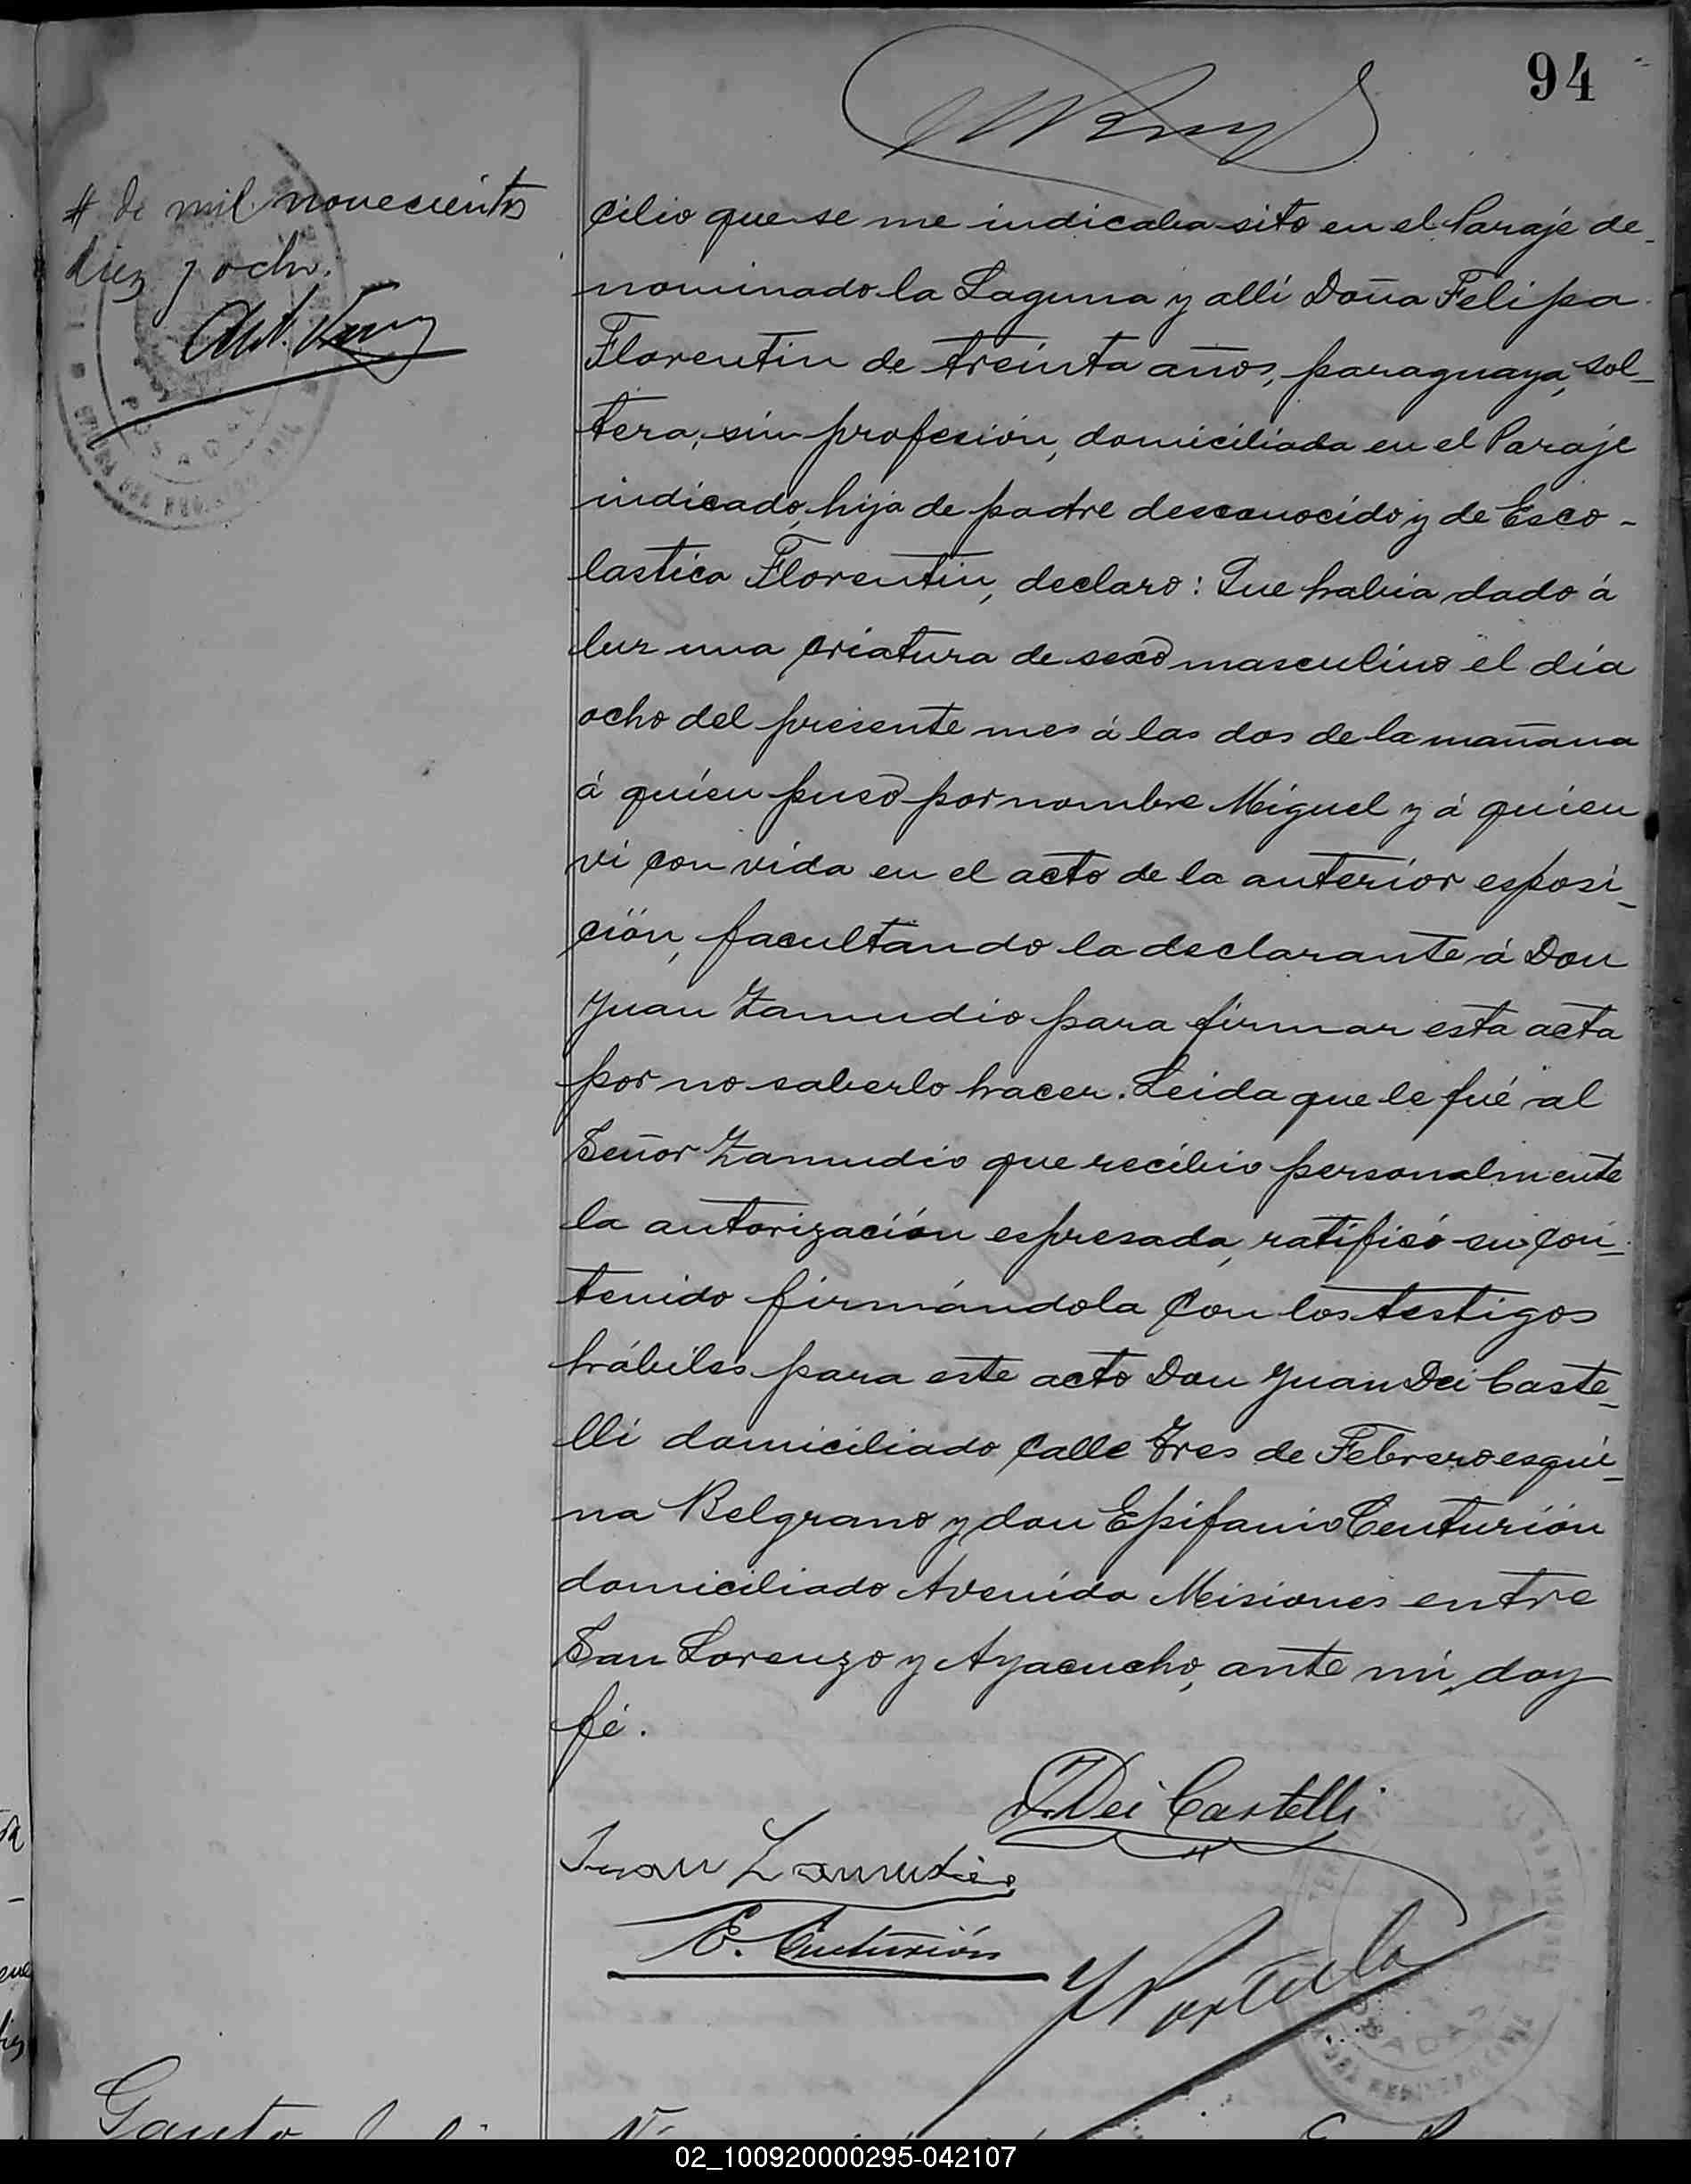 94
# de mil novecientos
diez y ocho.
cilio que se me indicaba sito en el Paraje de-
nominado la Laguna y alli Doña Felipa
Florentin de treinta años, paraguaya, sol-
tera, sin profesión, domiciliada en el Paraje
indicado, hija de padre desconocido y de Esco-
lastica Florentin, declaro: Que habia dado á
luz una criatura de sexo masculino el dia
ocho del presente mes á las dos de la mañana
á quien puso por nombre Miguel y á quien
vi con vida en el acto de la anterior esposi-
ción, facultando la declarante á Don
Juan Zamudio para firmar esta acta
por no saberlo hacer. Leida que le fué al
Señor Zamudio que recibio personalmente
la autorización espresada, ratificó su con-
tenido firmándola con los testigos
hábiles para este acto Don Juan Dei Caste-
lli domiciliado calle Tres de Febrero esqui-
na Belgrano y don Epifanio Centurión
domiciliado Avenida Misiones entre
San Lorenzo y Ayacucho, ante mi, doy
fé.
J. Dei Castelli
Juan Zamudio
E. Centurión
02_100920000295-042107